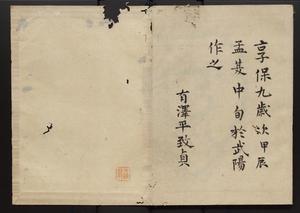 享保九歳次甲辰
孟夏中旬於武陽
作之
有澤平致貞